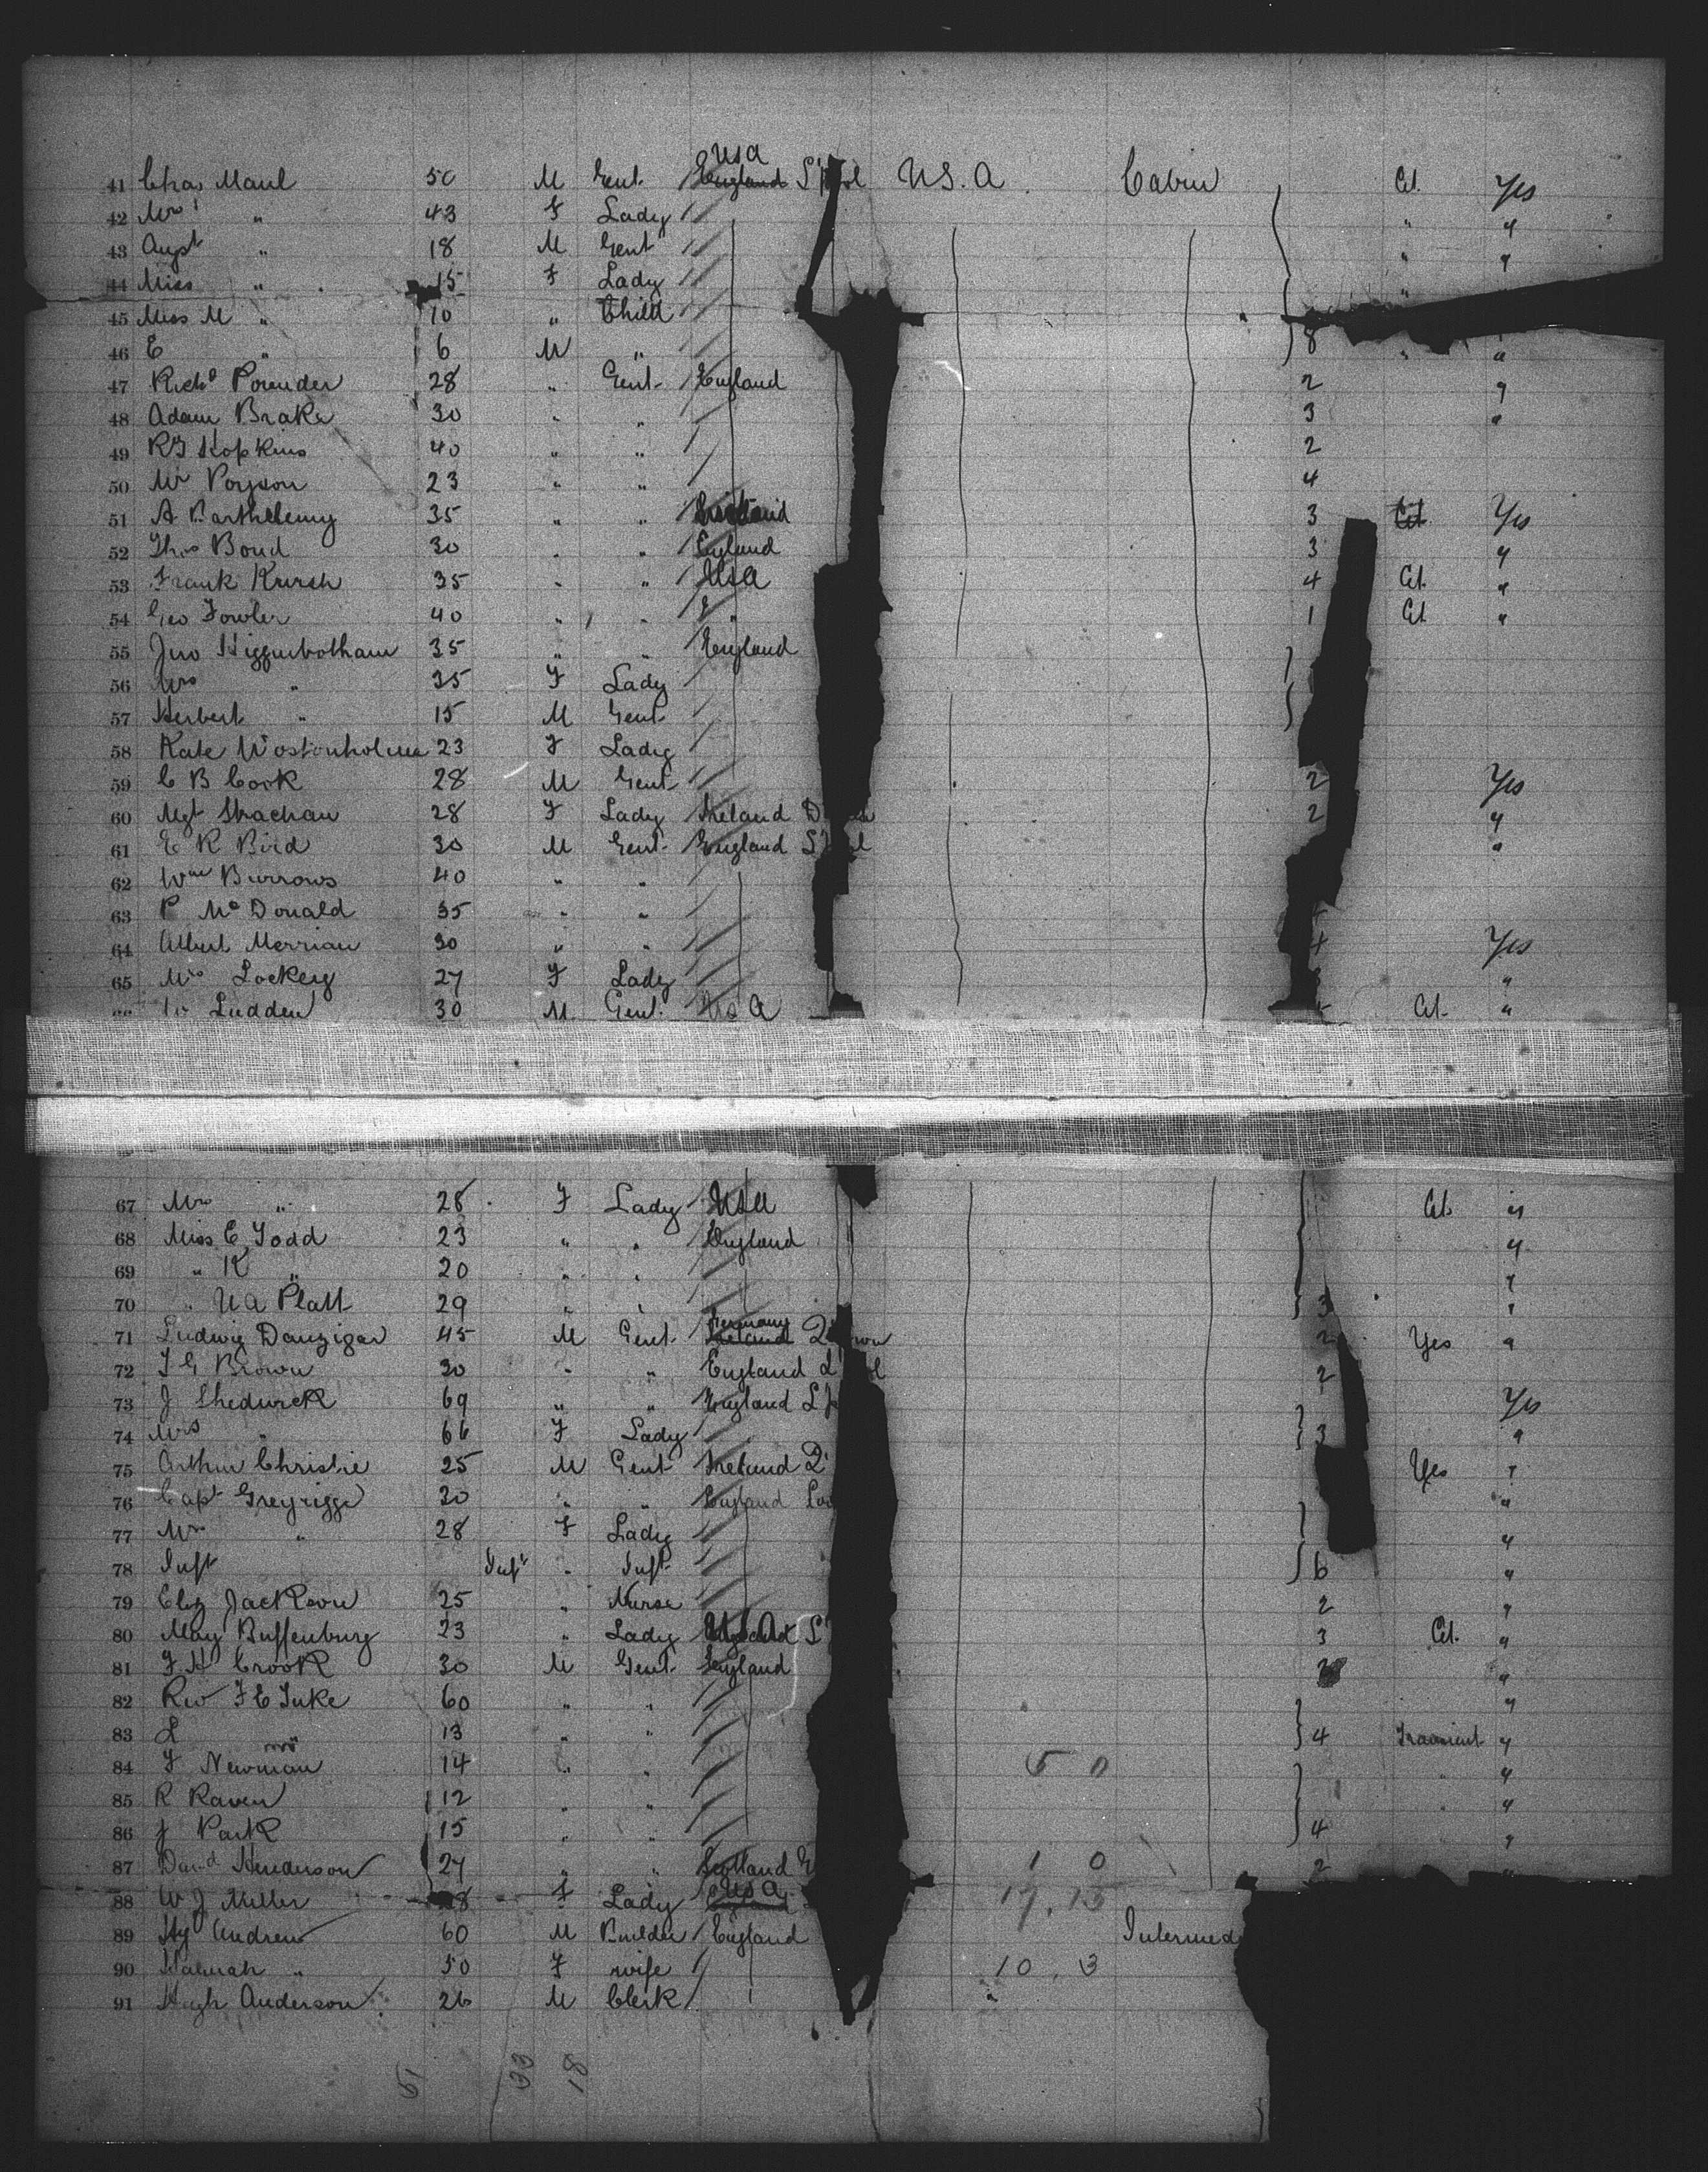 USA
41 Chas Maul 50 M Gent England L'pool U.S.A Cabin Cit. Yes
42 Mrs " 43 F Lady " "
43 Augst " 18 M Gent " "
44 Miss " 15 F Lady "
45 Miss M " 10 " Child
46 E " 6 M " 8 " "
47 Richd Pounder 28 " Gent England 2 "
48 Adam Brake 30 " " 3 "
49 RG Hopkins 40 " " 2
50 Mr 23 " " 4
51 A Barthelemy 35 " " 3 Cit Yes
52 Thos Bond 30 " " England 3 "
53 Frank Kursh 35 " " USA 4 Cit. "
54 Geo Fowler 40 " " " 1 Cit "
55 Jno Higginbotham 35 " " England
56 Mrs " 35 F Lady
57 Herbert " 15 M Gent
58 Kate Wostenholme 23 F Lady
59 C B Cook 28 M Gent 2 Yes
60 Mgt Strachan 28 F Lady Ireland 2 "
61 E R Bird 30 M Gent England "
62 Wm Burrows 40 " "
63 P McDonald 35 " "
64 Albert Merriam 30 " " 4 Yes
65 Mrs Lockery 27 F Lady "
Ludden 30 M Gent. USA Cit. "
67 Mrs " 28 F Lady USA Cit. "
68 Miss E Todd 23 " " England "
69 " K " 20 " " "
70 " Platt 29 " " 3 "
Germany
71 Ludwig Danziger 45 M Gent Ireland 2 Yes "
72 Brown 30 " " England 2
73 J Shedwick 69 " " England Yes
74 Mrs " 66 F Lady 3 "
75 Arthur Christie 25 M Gent Ireland Yes "
76 Capt Greyrigge 30 " " England "
77 Mrs " 28 F Lady "
78 Inft Inft " Inft 6 "
79 Eliz Jackson 25 " Nurse 2 "
80 May Buffenburg 23 " Lady 3 Cit. "
81 F H Crook 30 M Gent England "
82 Rev F E Tuke 60 " " "
83 L 13 " 4 Transient "
84 F Newman 14 " " 5 0 "
85 R Raven 12 " " "
86 J Park 15 " " 4 "
87 David Henderson 27 " " Scotland 1 0 2 "
USA
88 W J Miller 28 F Lady 17. 15
89 Hy Andrew 60 M Builder England Intermed
90 Hannah " 50 F wife 10. 3
91 Hugh Anderson 26 M Clerk
33 18